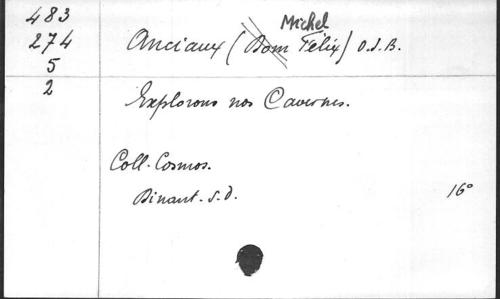 483
274
5
2
Michel
Anciaux (Dom Félix) O.S.B.
Explorons nos Cavernes.
Coll. Cosmos.
Dinant. s.d. 16°